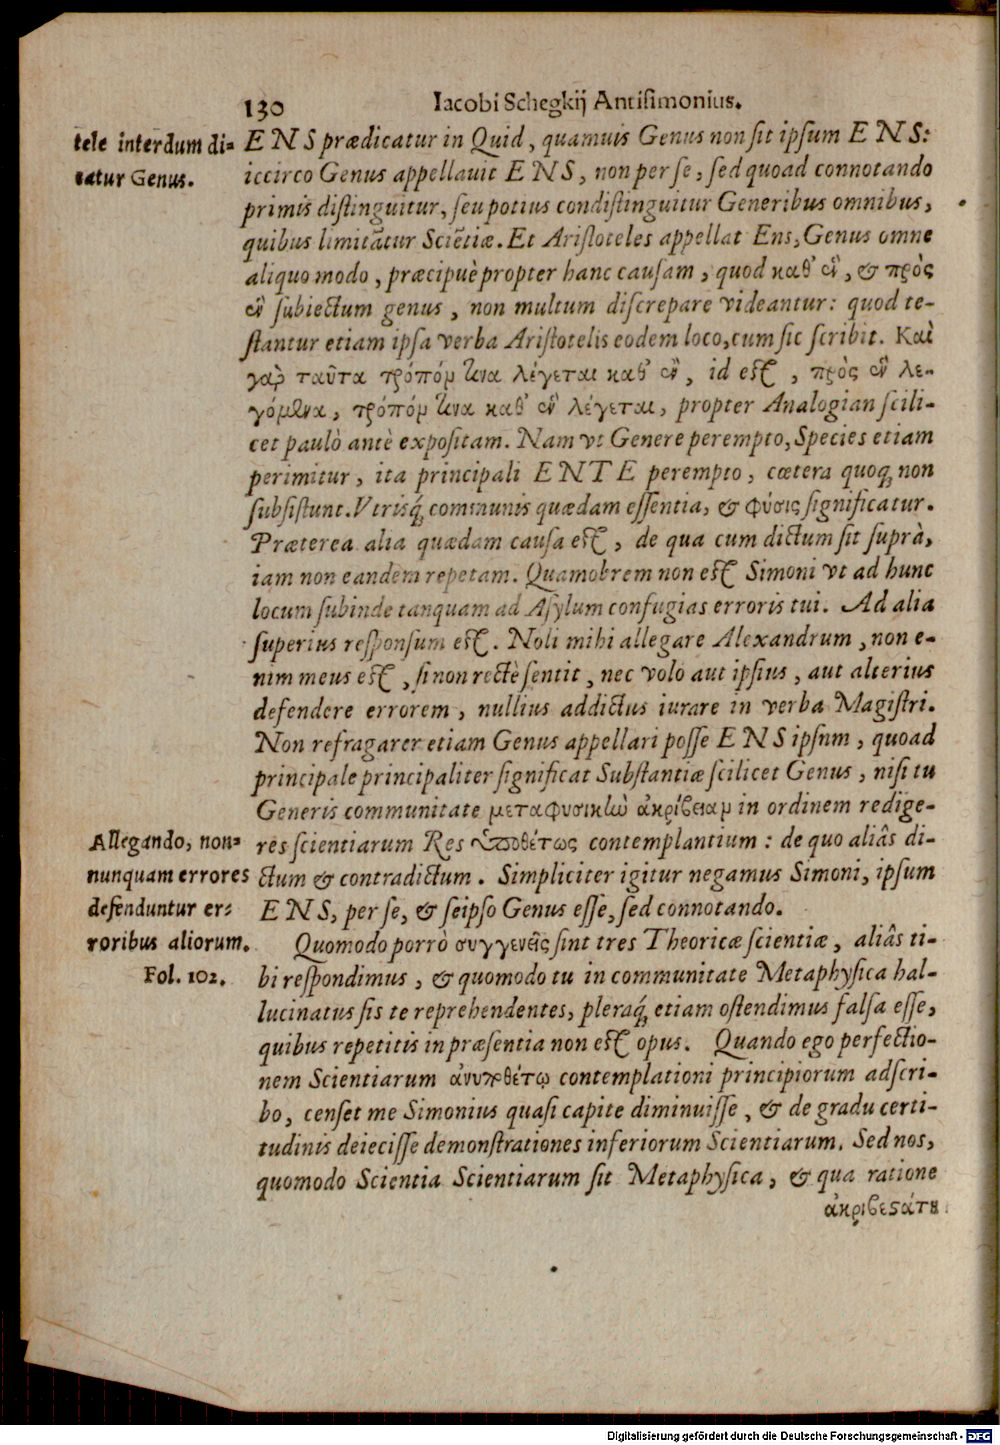 130 Iacobi Schegkij Antisimonius.
tele interdum di-
catur Genus.
ENS prædicatur in Quid, quamuis Genus non sit ipsum ENS:
iccirco Genus appellauit ENS, non per se, sed quoad connotando
primis distinguitur, seu potius condistinguitur Generibus omnibus,
quibus limitātur Sciētiæ. Et Aristoteles appellat Ens, Genus omne
aliquo modo, præcipuè propter hanc causam, quod καθ' ἓν, & πρὸς
ἓν subiectum genus, non multum discrepare videantur: quod te-
stantur etiam ipsa verba Aristotelis eodem loco, cum sic scribit. Καὶ
γὰρ ταῦτα τρόπον τινα λέγεται καθ' ἓν, id est, πρὸς ἓν λε-
γόμενα, τρόπον τινα καθ' ἓν λέγεται, propter Analogian scili-
cet paulò antè expositam. Nam vt Genere perempto, Species etiam
perimitur, ita principali ENTE perempto, cœtera quoq; non
subsistunt. Vtrisq; communis quædam essentia, & φύσις significatur.
Præterea alia quædam causa est, de qua cum dictum sit suprà,
iam non eandem repetam. Quamobrem non est Simoni vt ad hunc
locum subinde tanquam ad Asylum confugias erroris tui. Ad alia
superius responsum est. Noli mihi allegare Alexandrum, non e-
nim meus est, si non rectè sentit, nec volo aut ipsius, aut alterius
defendere errorem, nullius addictus iurare in verba Magistri.
Non refragarer etiam Genus appellari posse ENS ipsnm, quoad
principale principaliter significat Substantiæ scilicet Genus, nisi tu
Generis communitate μεταφυσικὴν ἀκρίβειαν in ordinem redige-
Allegando, non-
nunquam errores
defenduntur er-
roribus aliorum.
Fol. 102.
res scientiarum Res ὑποθέτως contemplantium: de quo aliâs di-
ctum & contradictum. Simpliciter igitur negamus Simoni, ipsum
ENS, per se, & seipso Genus esse, sed connotando.
Quomodo porrò συγγενεῖς sint tres Theoricæ scientiæ, aliâs ti-
bi respondimus, & quomodo tu in communitate Metaphysica hal-
lucinatus sis te reprehendentes, pleraq; etiam ostendimus falsa esse,
quibus repetitis in præsentia non est opus. Quando ego perfectio-
nem Scientiarum ἀνυποθέτῳ contemplationi principiorum adscri-
bo, censet me Simonius quasi capite diminuisse, & de gradu certi-
tudinis deiecisse demonstrationes inferiorum Scientiarum. Sed nos,
quomodo Scientia Scientiarum sit Metaphysica, & qua ratione
ἀκριβεστάτη
Digitalisierung gefördert durch die Deutsche Forschungsgemeinschaft - DFG